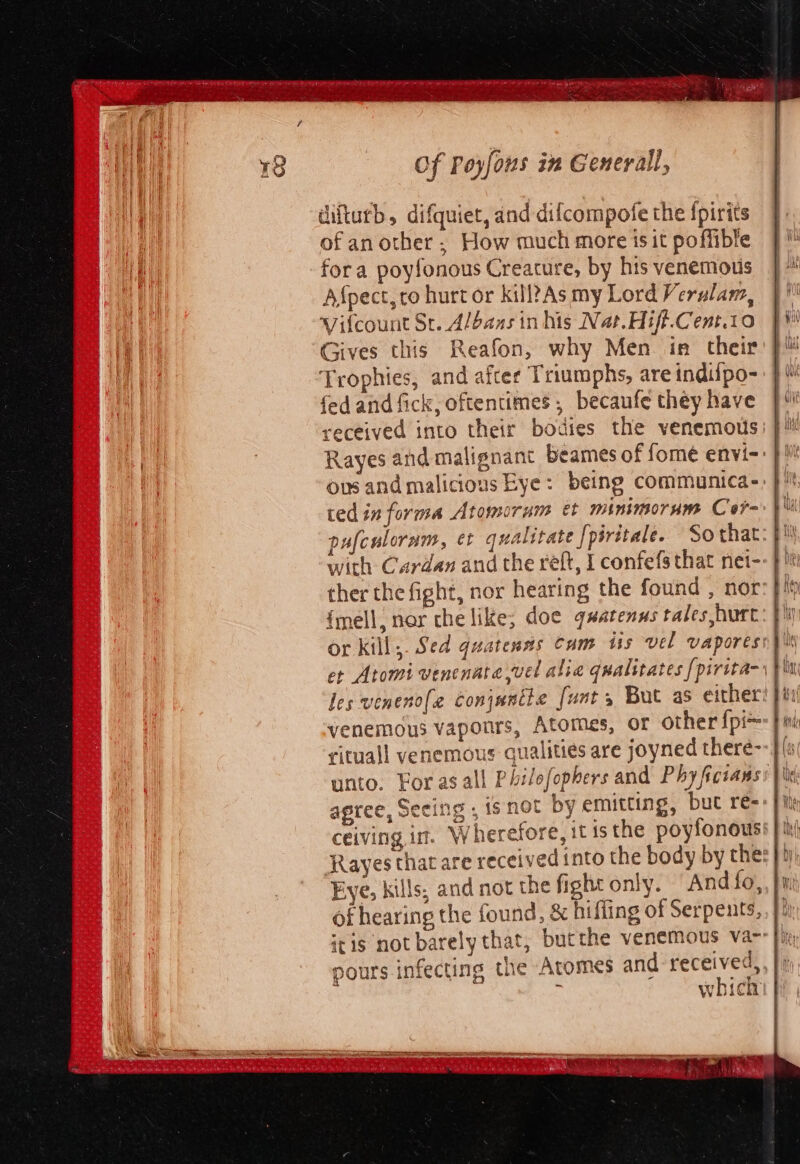 18 Of Poyſons in Generall,
diſturb, diſquiet, and diſcompoſe the ſpirits
of an other; How much more is it poſſible
for a poyſonous Creature, by his venemous
Aſpect, to hurt or kill? As my Lord Verulam,
Viſcount St. Albans in his Nat. Hiſt. Cent. 10
Gives this Reaſon, why Men in their
Trophies, and after Triumphs, are indiſpo-
ſed and ſick, oftentimes; becauſe they have
received into their bodies the venemous
Rayes and malignant beames of ſome envi-
ous and malicious Eye: being communica-
ted in forma Atomorum et minimorum Cor-
puſculorum, et qualitate ſpiritale. So that
with Cardan and the reſt, I confeſs that nei-
ther the ſight, nor hearing the ſound, nor
ſmell, nor the like; doe quatenus tales, hurt
or kill;. Sed quatenus cum iis vel vapores
et Atomi venenatæ, vel aliæ qualitates ſpirita-
les venenoſæ conjunctæ ſunt; But as either
venemous vapours, Atomes, or other ſpi-
rituall venemous qualities are joyned there-
unto. For as all Philoſophers and Phyſicians
agree, Seeing, is not by emitting, but re-
ceiving in. Wherefore, it is the poyſonous
Rayes that are received into the body by the
Eye, kills; and not the ſight only. And ſo,
of hearing the ſound, & hiſſing of Serpents,
it is not barely that, but the venemous va-
pours infecting the Atomes and received,
which